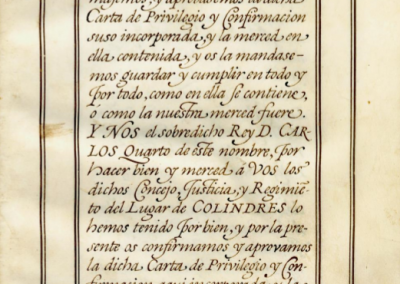 Carta de Privilegio y Confirmacion
suso incorporada, y la merced en
ella contenida, y os la mandase-
mos guardar y cumplir en todo y
por todo, como en ella se contiene,
o como la nuestra merced fuere.
Y NOS el sobredicho Rey D. CAR-
LOS Quarto de este nombre, por
hacer bien y merced á VOS los
dichos Concejo, Justicia, y Regimie-
to del Lugar de COLINDRES lo
hemos tenido por bien, y por la pre-
sente os confirmamos y aprovamos
la dicha Carta de Privilegio y Con-